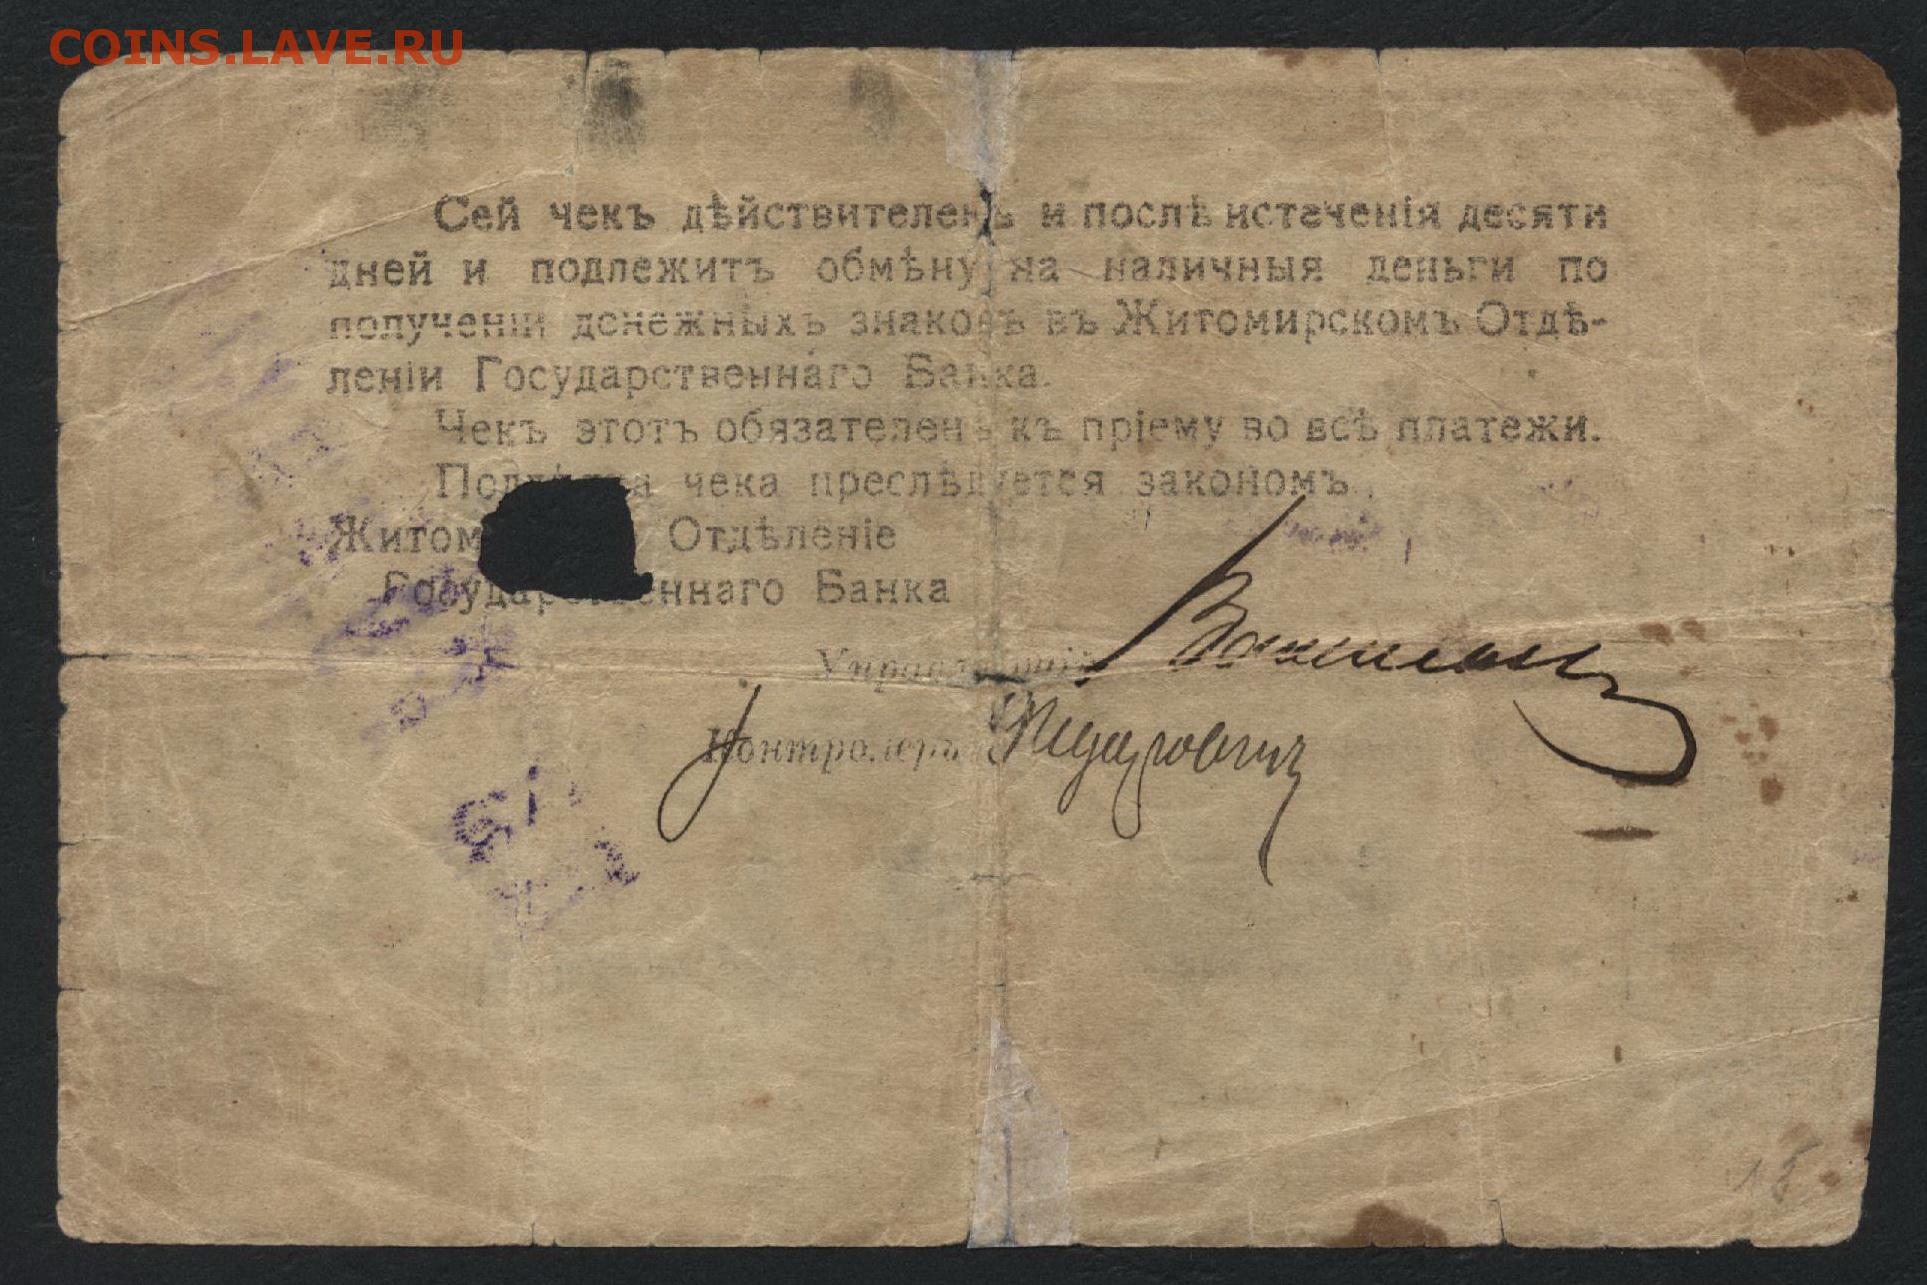 COINS.LAVE.RU
Сей чекъ дѣйствителенъ и послѣ истеченія десяти
дней и подлежитъ обмѣну на наличныя деньги по
полученіи денежныхъ знаковъ въ Житомирскомъ Отдѣ-
леніи Государственнаго Банка.
Чекъ этотъ обязателенъ къ пріему во всѣ платежи.
Поддѣлка чека преслѣдуется закономъ.
Житом Отдѣленіе
Государственнаго Банка
Управляющій
Контролеръ
15